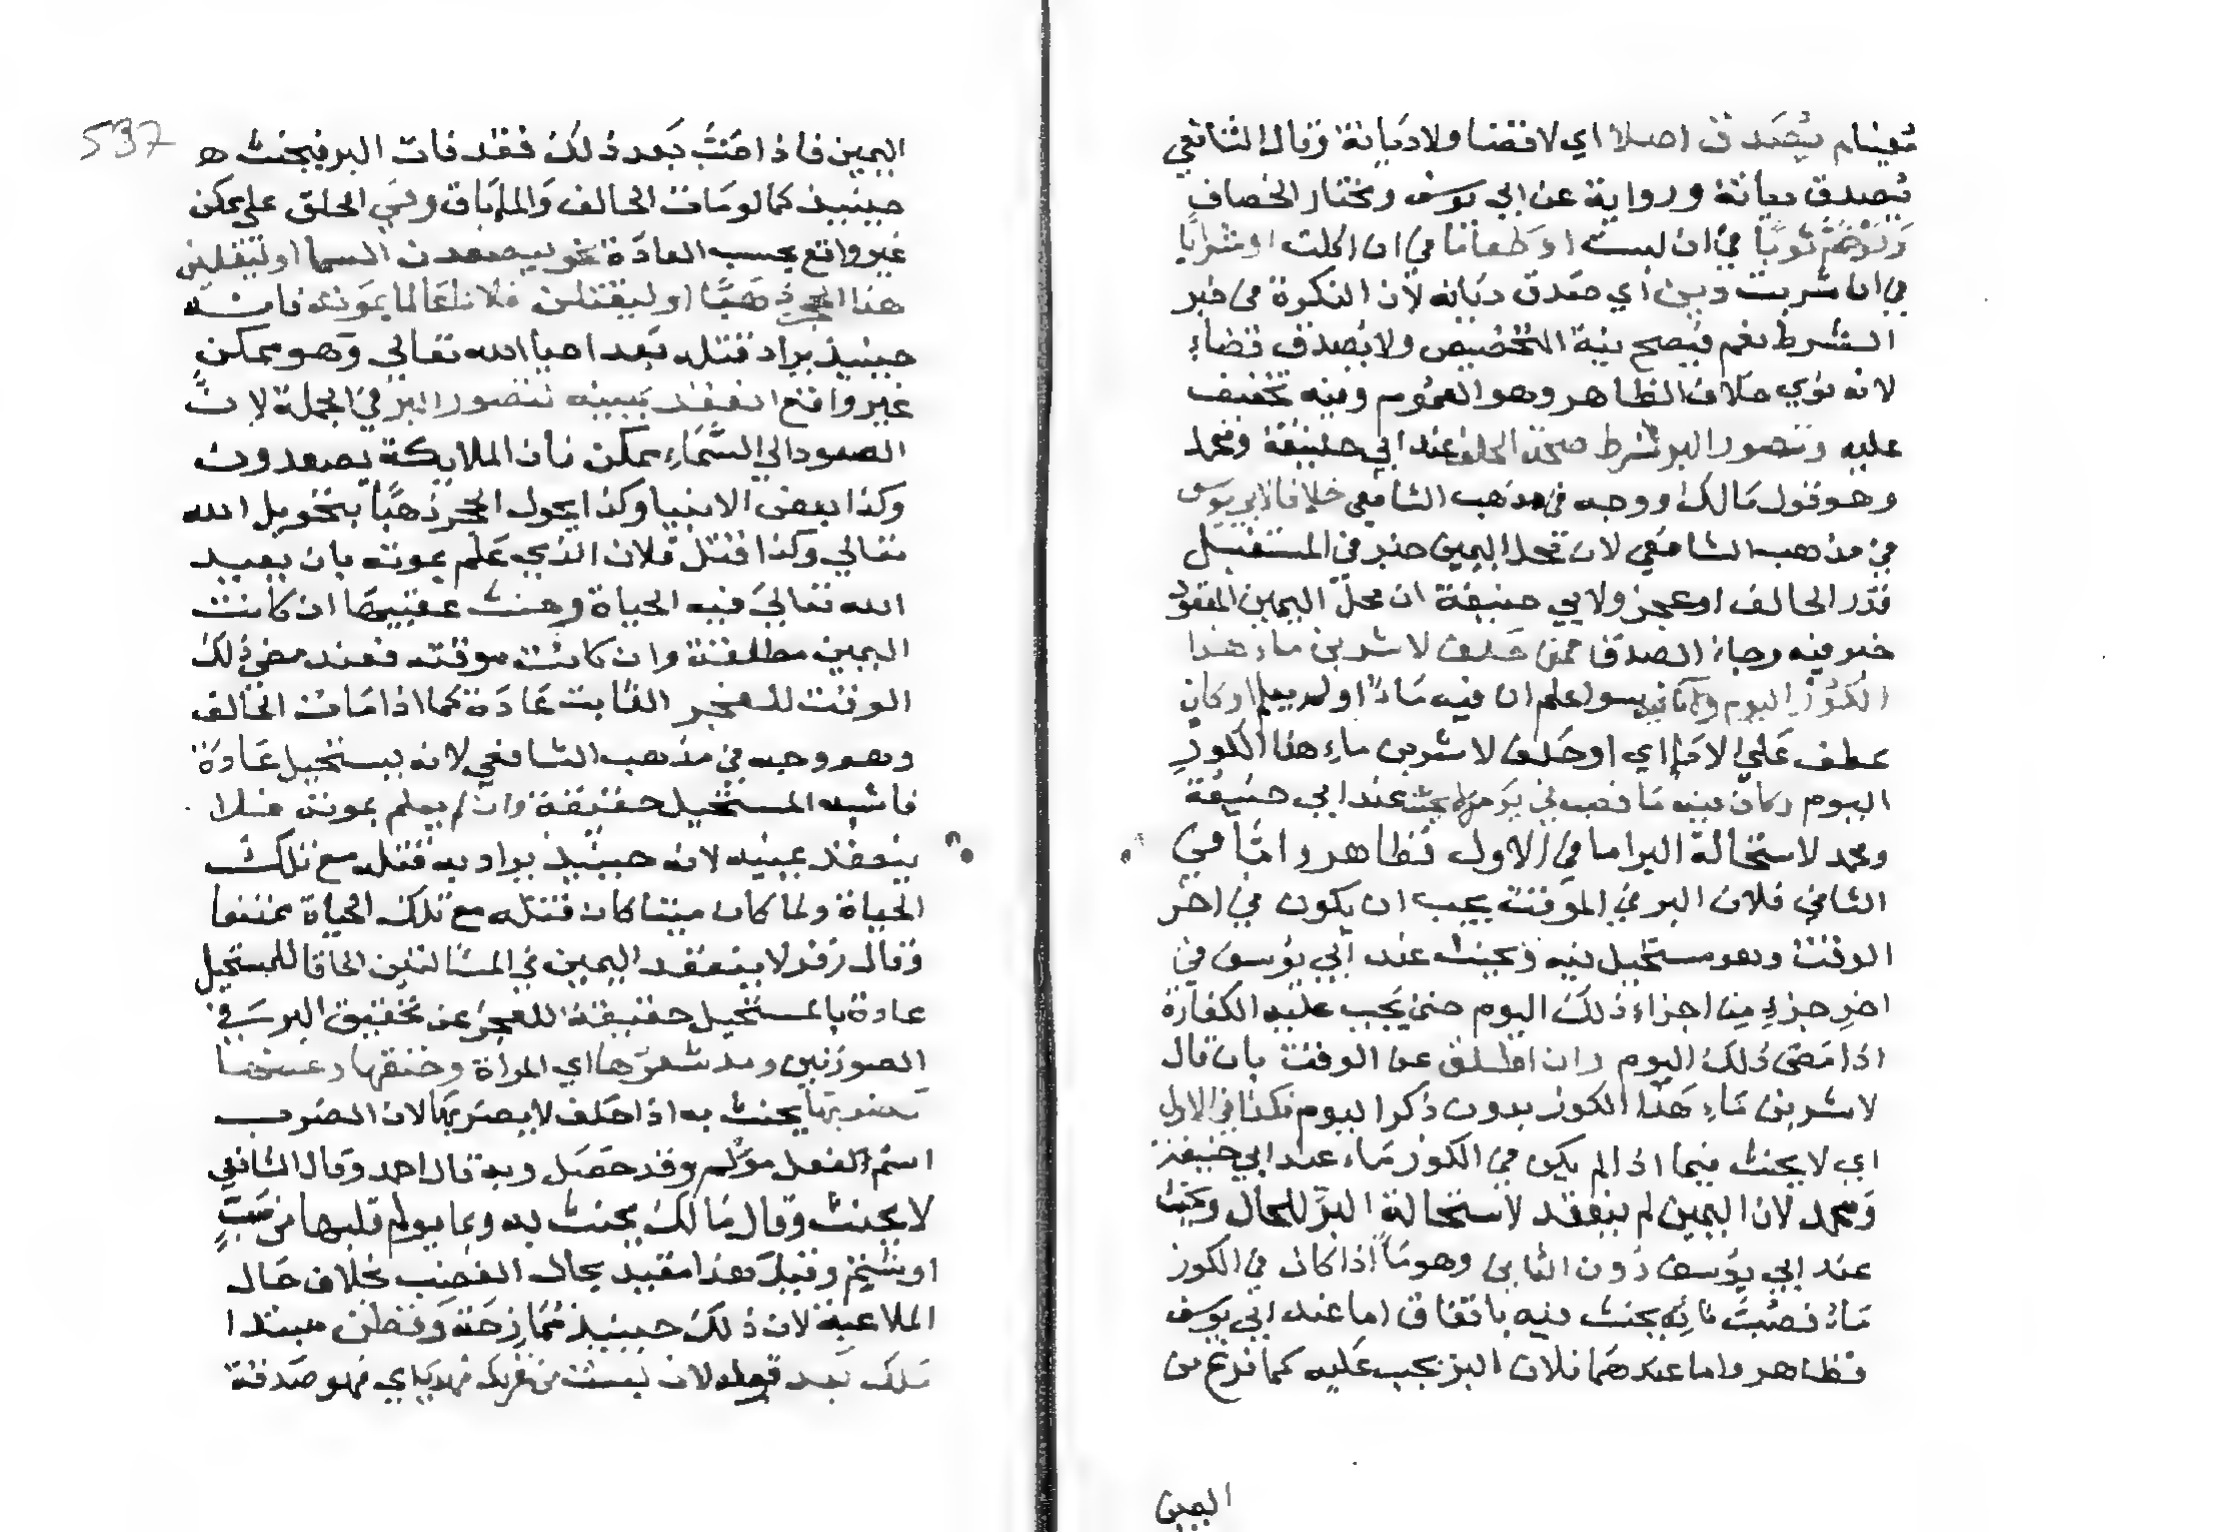 معينا لم يصدق اصلا اي لا قضا ولا ديانة وقال الشافعي
يصدق ديانة ورواية عن ابي يوسف ومختار الخصاف
ثوبا في ان لبست او طعاما في ان اكلت او شرابا
في ان شربت دين اي صدق ديانه لان النكرة في خبر
الشرط تعم فيصح نية التخصيص ولا يصدق قضاء
لانه نوي خلاف الظاهر وهو العموم وفيه تخفيف
عليه وتصور البر شرط صحة الحلف عند ابي حنيفة ومحمد
وهو قول مالك ووجه في مذهب الشافعي خلافا لابي يوسف
في مذهب الشافعي لان محل اليمين خبر في المستقبل
قدر الحالف او عجز ولابي حنيفة ان محل اليمين المعقود
خبر فيه رجاء الصدق فمن حلف لا شربن ماء هذا
الكوز اليوم ولا ماء فيه سوا علم ان فيه ماء او لم يعلم او كان
عطف علي لا ماء اي او حلف لا شربن ماء هذا الكوز
اليوم وكان فيه ما فصب في يومه لا يحنث عند ابي حنيفة
ومحمد لاستحالة البر اما في الاول فظاهر واما في
الثاني فلان البر في الموقت يجب ان يكون في اخر
الوقت وهو مستحيل فيه ويحنث عند ابي يوسف في
اخر جزء من اجزاء ذلك اليوم حتي يجب عليه الكفارة
اذا مضي ذلك اليوم وان اطلق عن الوقت بان قال
لا شربن ماء هذا الكوز بدون ذكر اليوم فكذا في الاول
اي لا يحنث فيما اذا لم يكن في الكوز ماء عند ابي حنيفة
ومحمد لان اليمين لم ينعقد لاستحالة البر للحال ويحنث
عند ابي يوسف دون الثاني وهو ما اذا كان في الكوز
ماء فصبت فانه يحنث فيه باتفاق اما عند ابي يوسف
فظاهر واما عندهما فلان البر يجب عليه كما فرغ من
اليمين
537
اليمين فاذا صب بعد ذلك فقد فات البر فيحنث ه
حينيذ كما لو مات الحالف والما باق وفي الحلف علي ممكن
غير واقع بحسب العادة نحو ليصعدن السما او ليقلبن
هذا الحجر ذهبا او ليقتلن فلانا عالما بموته فانه
حينيذ يراد قتله بعد احيا الله تعالي وهو ممكن
غير واقع انعقد يمينه لتصور البر في الجملة لان
الصعود الي السماء ممكن فان الملايكة يصعدون
وكذا بعض الانبيا وكذا يحول الحجر ذهبا بتحويل الله
تعالي وكذا قتل فلان الذي علم بموته بان يعيد
الله تعالي فيه الحياة وحنث عقيبها ان كانت
اليمين مطلقة وان كانت موقته فعند مضي ذلك
الوقت للعجز الثابت عادة كما اذا مات الحالف
وهو وجه في مذهب الشافعي لانه يستحيل عادة
فاشبه المستحيل حقيقة وان لم يعلم بموته فلا
ينعقد يمينه لانه حينيذ يراد به قتله مع تلك
الحياة ولما كان ميتا كان قتله مع تلك الحياة ممتنعا
وقال زفر لا ينعقد اليمين في المسالتين الحاقا للمستحيل
عادة بالمستحيل حقيقة للعجز عن تحقيق البر في
الصورتين ومد شعرها اي المراة وخنقها وعضها
كضربها يحنث به اذا حلف لا يضربها لان الضرب
اسم لفعل مؤلم وقد حصل وبه قال احمد وقال الشافعي
لا يحنث وقال مالك يحنث به وبما يولم قلبها من سب
او شتم وقيل هذا مقيد بحال الغضب بخلاف حال
الملاعبة لان ذلك حينيذ ممازحة وقطن مبتدا
ملك بعد قوله لان لبست من غزلك فهدي اي فهو صدقة